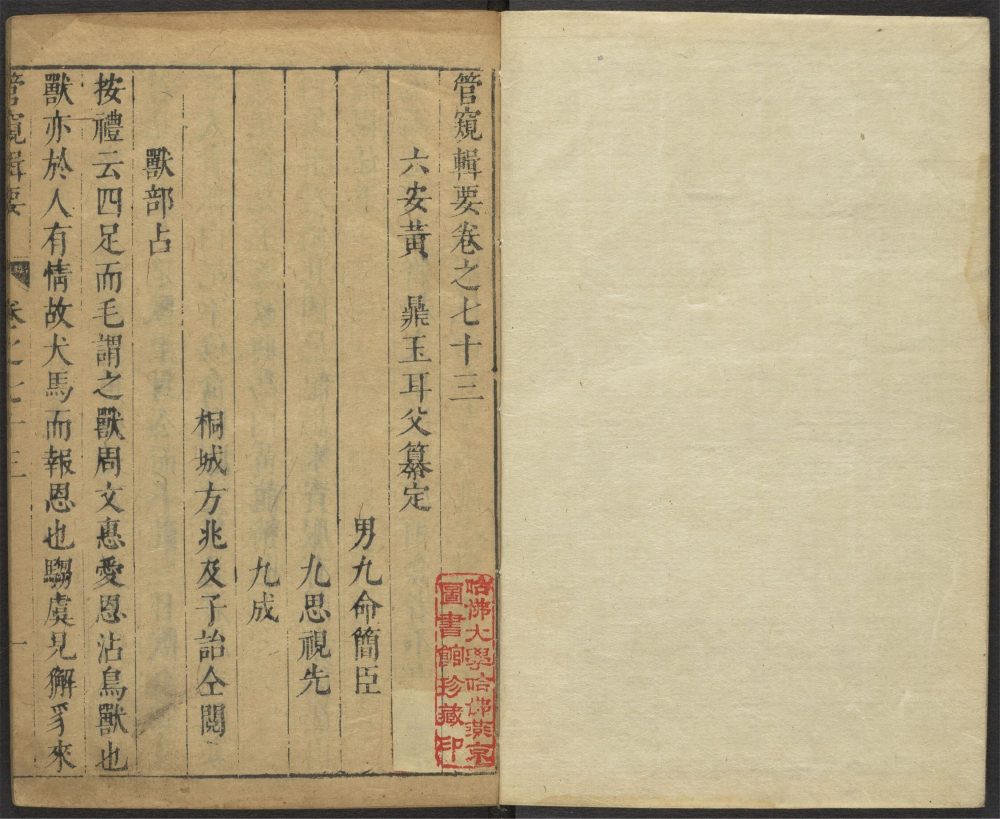 管窺輯要卷之七十三
六安黃 鼎玉耳父纂定
男九命簡臣
九思視先
九成
桐城方兆及子詒仝閱
獸部占
按禮云四足而毛謂之獸周文惠愛恩沾鳥獸也
獸亦於人有情故犬馬而報恩也騶虞見獬豸來
管窺輯要 卷之七十三 一
哈佛大學哈佛燕京
圖書館珍藏印